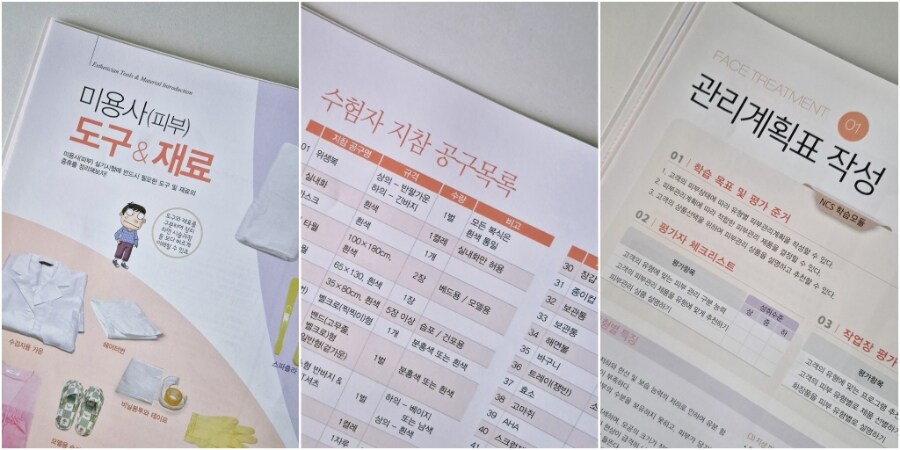 Esthetician Tools & Material Introduction
미용사(피부)
도구 & 재료
미용사(피부) 실기시험에 반드시 필요한 도구 및 재료의
종류를 정리해보자!
수험자용 가운
헤어터번
비닐봉투와 테이프
스파출라
수험자 지참 공구목록
지참 공구명 규격 수량 비고
01 위생복 상의 – 반팔가운 하의 – 긴바지 1벌 모든 복식은 흰색 통일
실내화 흰색 1켤레 실내화만 허용
마스크 흰색 1개
타월 100×180cm, 흰색 2장 베드용 / 모델용
65×130, 흰색 1장
35×80cm, 흰색 5장 이상 습포 / 건포용
벨크로(찍찍이)형 1개 분홍색 또는 흰색
밴드(고무줄, 벨크로)형 1벌 분홍색 또는 흰색
하의 – 베이지 또는 남색
상의 – 흰색
30 장갑
31 종이컵
32 보관통
33 보관통
34 해면볼
35 바구니
36 트레이(쟁반)
37 효소
38 고마쥐
39
40
41
FACE TREATMENT
관리계획표 작성 01
NCS 학습모듈
01 학습 목표 및 평가 준거
1. 고객의 피부상태에 따라 유형별 피부관리계획을 작성할 수 있다.
2. 피부관리계획에 따라 적합한 피부관리 제품을 결정할 수 있다.
3. 고객의 상품선택을 위하여 피부관리 상품을 설명하고 추천할 수 있다.
02 평가자 체크리스트
평가항목 성취수준
상 중 하
고객의 유형에 맞는 피부 관리 구분 능력
고객의 피부관리 제품을 유형에 맞게 추천하기
피부관리 상품 설명하기
03 작업장 평가
평가항목
고객의 유형에 맞는 프로그램 추
고객의 피부 유형별로 제품 선별하기
화장품을 피부 유형별로 설명하기